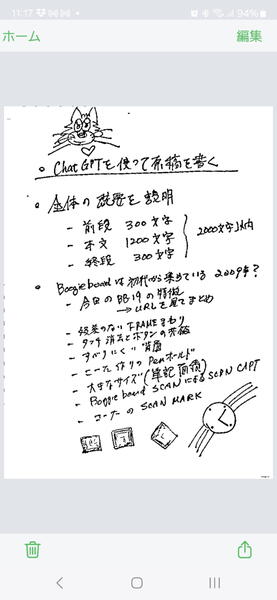 11:17
94%
ホーム
編集
• ChatGPTを使って原稿を書く
• 全体の
を説明
- 前段 300文字
- 本文 1200文字
- 終段 300文字
2000文字以内
• Boogieboardは初代から来ている 2009年?
- 今日の BB19の特徴
→ URLを見てまとめ
- 段差のない FRAMEまわり
- タッチ消去とボタンの
- すべりにくい背面
- こった作りの Penホールド
- 大きなサイズ (筆記面積)
- Boogie board SCANによる SCAN CAPT
- コーナーの SCAN MARK